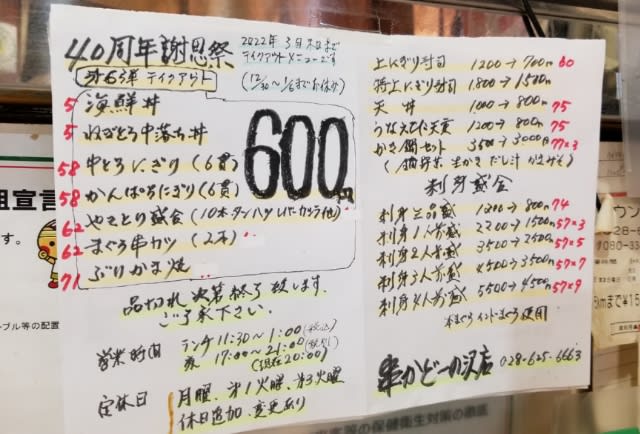 40周年謝恩祭
2022年3月末日まで
テイクアウトメニューです
第63弾 テイクアウト
(12/30〜1/6までお休み)
5 海鮮丼
5 ねぎとろ中落ち丼
58 中とろにぎり(6貫)
58 かんぱちにぎり(6貫)
62 やきとり盛合(10本タンハツレバーカシラ他)
62 まぐろ串カツ(2本)
71 ぶりかま焼
600円
品切れ次第終了致します。
ご了承下さい。
営業時間
ランチ11:30〜1:00(税込)
夜 17:00〜21:00(税別)
(現在20:00)
定休日
月曜、第1火曜、第3火曜
休日追加、変更あり
上にぎり寿司 1200→700円 60
特上にぎり寿司 1800→1500円
天丼 1000→800円 75
うなえび天重 1200→800円 75
かき鍋セット 3500→3000円 77×3
刺身盛合
刺身三品盛 1200→800円 74
刺身1人前盛 2200→1500円 57×3
刺身2人前盛 3500→2500円 57×5
刺身3人前盛 4500→3500円 57×7
刺身4人前盛 5500→4500円 57×9
本まぐろ インドまぐろ使用
串かど一の沢店 028-625-6663
組宣言
す。
ーブル等の配置
ウン
028-6
☎080-33
kmまで¥15
等の保健衛生対策の徹底